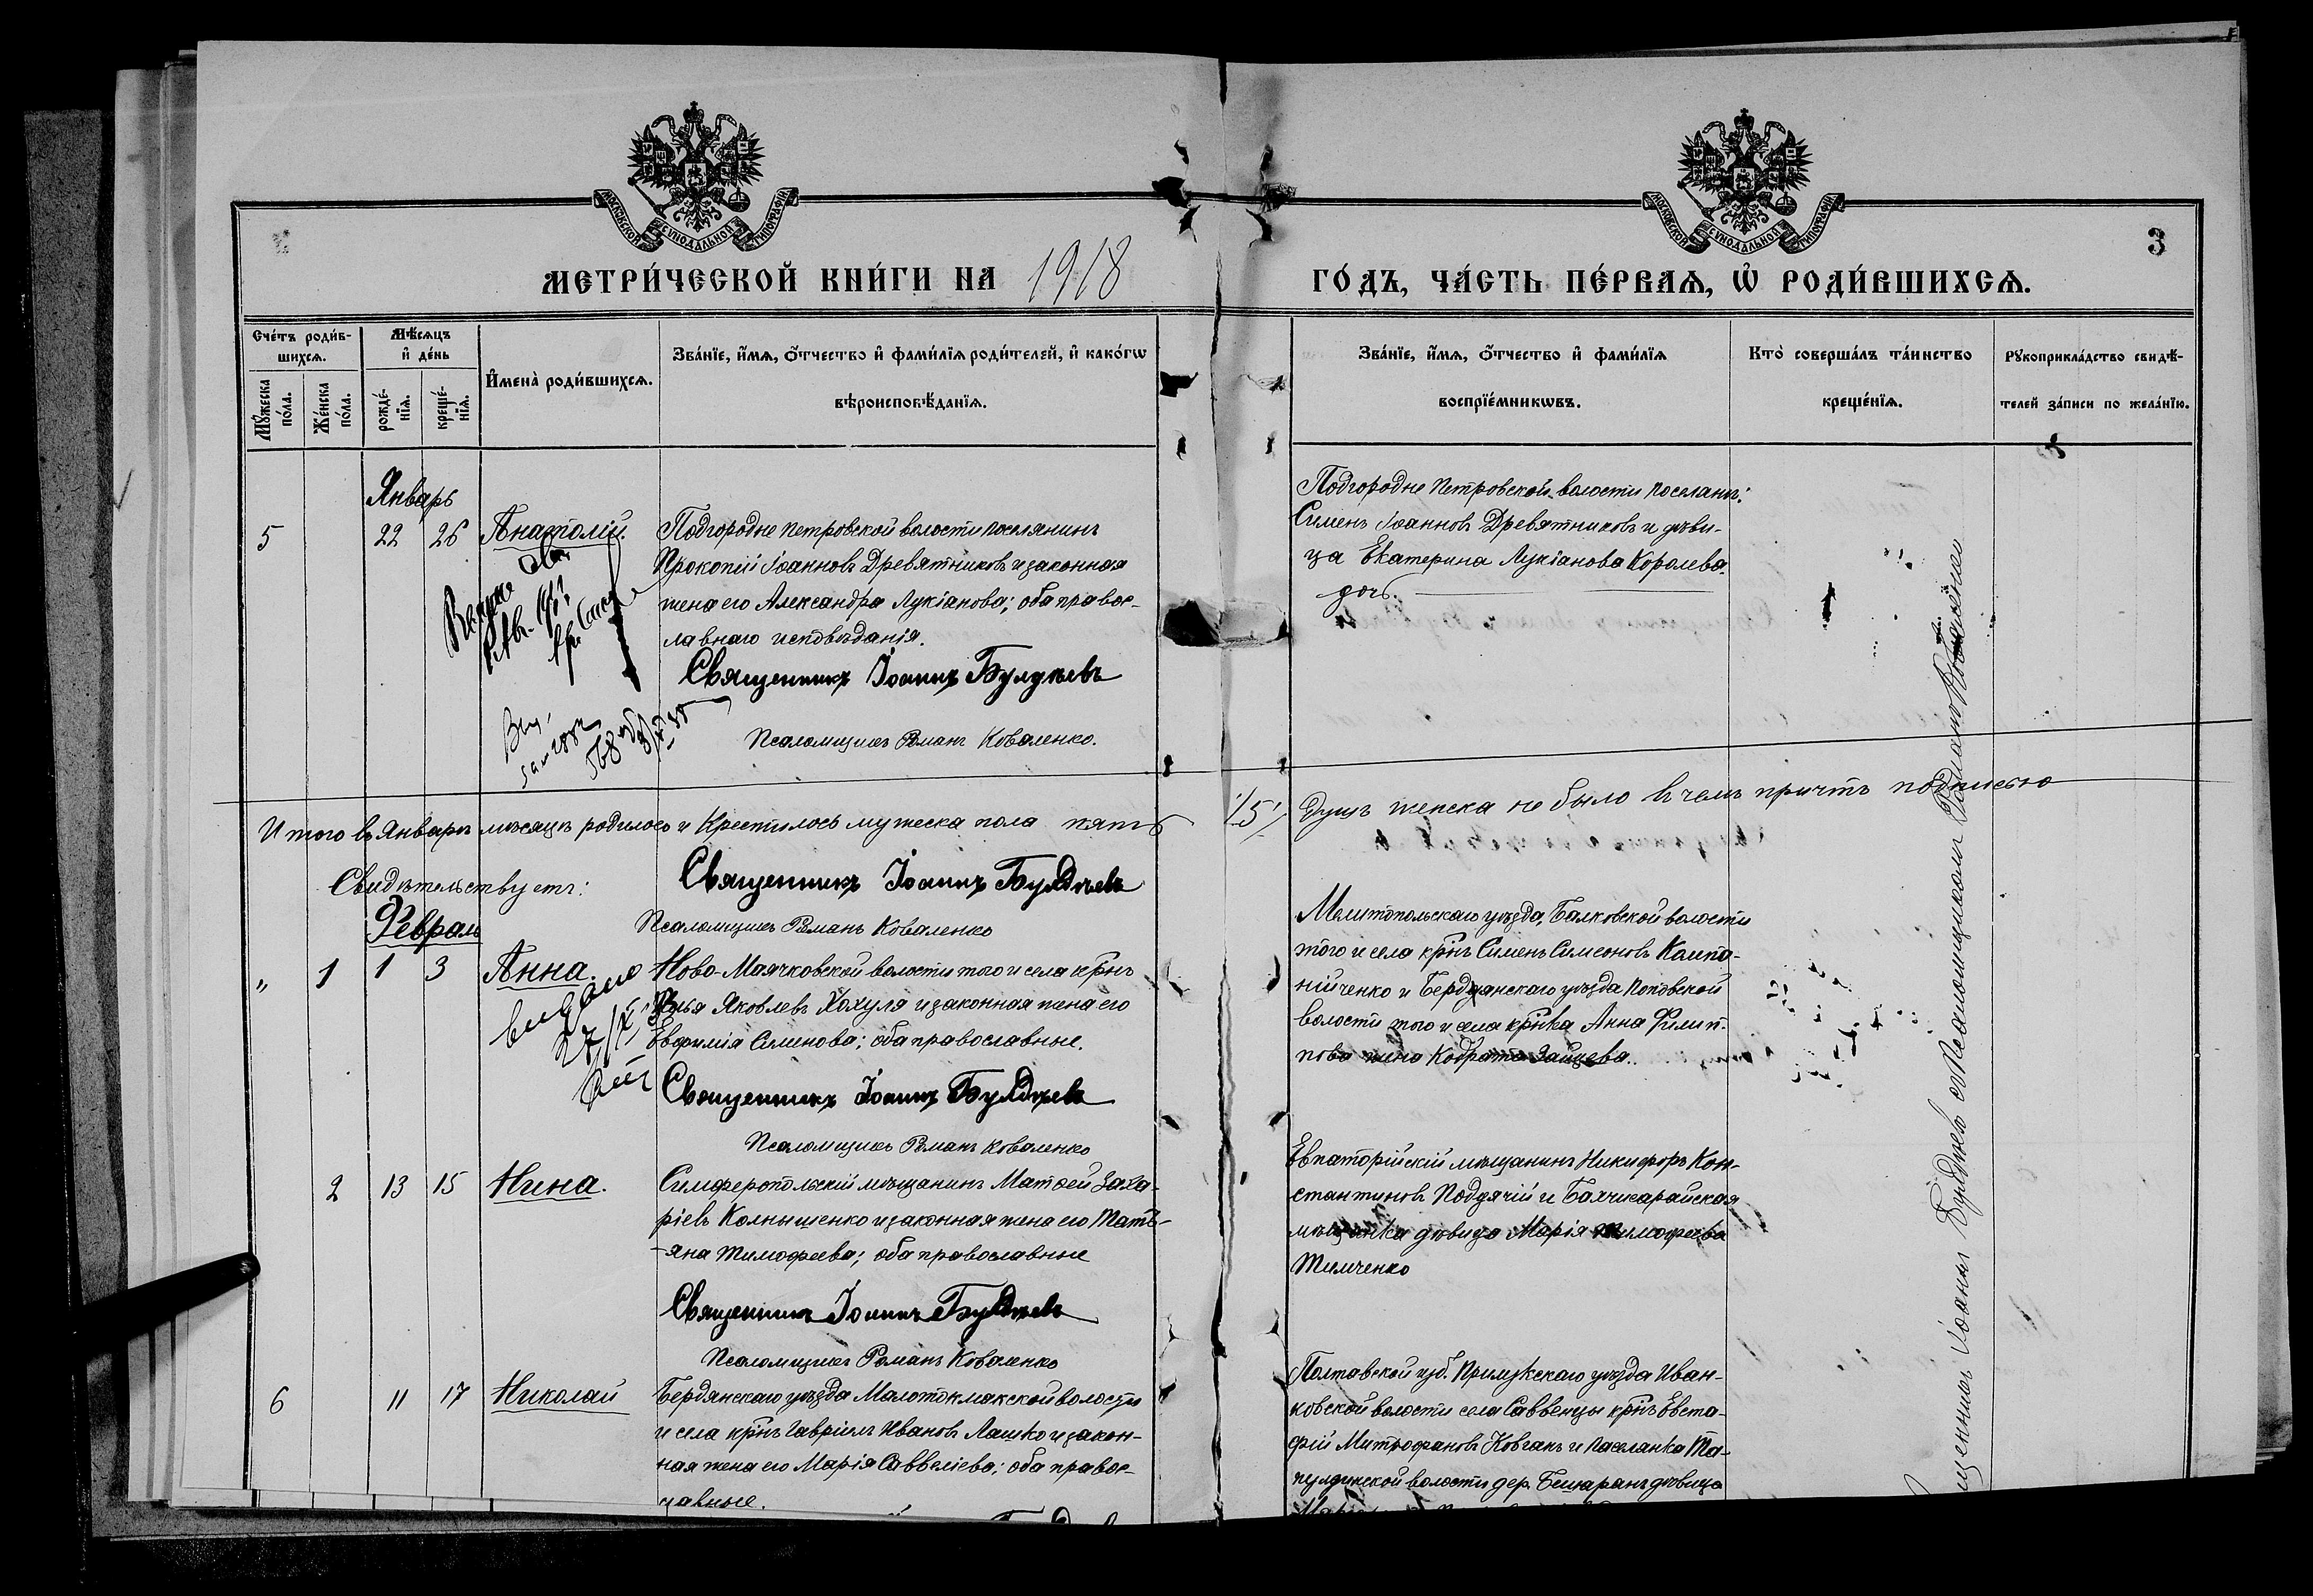 МОСКОВСКОЙ СѴНОДАЛЬНОЙ ТИПОГРАФІИ
МОСКОВСКОЙ СѴНОДАЛЬНОЙ ТИПОГРАФІИ
3
МЕТРИ́ЧЕСКОЙ КНИ́ГИ НА 1918
ГО́ДЪ, ЧА́СТЬ ПЕ́РВАѦ, Ѽ РОДИ́ВШИХСѦ.
Сче́тъ роди́в-
шихсѧ.
Мꙋ́жеска по́ла.
Же́нска по́ла.
Мѣ́сѧцъ
и҆ де́нь
рожде́-
нїѧ.
креще́-
нїѧ.
И҆мена̀ роди́вшихсѧ.
Зва́нїе, и҆́мѧ, ѻ҆́тчество и҆ фами́лїѧ роди́телей, и҆ како́гѡ
вѣроисповѣ́данїѧ.
Зва́нїе, и҆́мѧ, ѻ҆́тчество и҆ фами́лїѧ
воспрїе́мникѡвъ.
Кто̀ соверша́лъ та́инство
креще́нїѧ.
Рꙋкоприкла́дство свидѣ́-
телей за́писи по жела́нїю.
Январь
5 22 26 Анатолій.
Подгородне Петровской волости поселянинъ
Прокопій Іоанновъ Древятниковъ и законная
жена его Александра Лукіанова; оба правос-
лавнаго исповѣданія.
Священникъ Іоаннъ Булдѣевъ
Псаломщикъ Романъ Коваленко.
Подгородне Петровской волости поселяны:
Сименъ Іоанновъ Древятниковъ и дѣви-
ца Екатерина Лукіанова Королева
дочь.
Итого въ Январѣ мѣсяцѣ родилось и крестилось мужеска пола пять /5/ душъ женска не было въ чемъ причтъ подписью
Свидѣтельствуетъ:
Священникъ Іоаннъ Булдѣевъ
Псаломщикъ Романъ Коваленко
Февраль
" 1 1 3 Анна.
выдано
Ново-Маячковской волости того и села крнъ
Илья Яковлевъ Хохуля и законная жена его
Евфимія Симонова; оба православные.
Священникъ Іоаннъ Булдѣевъ
Псаломщикъ Романъ Коваленко
Мелитопольскаго уѣзда, Балковской волости
того и села крнъ Сименъ Симеоновъ Компа-
нійченко и Бердянскаго уѣзда Поповской
волости того и села крнка Анна Филип-
пова жена Кодрата Зайцева.
2 13 15 Нина.
Симферопольскій мѣщанинъ Матѳей Заха-
ріевъ Колнышенко и законная жена его Татъ-
-яна Тимофеева; оба православные
Священникъ Іоаннъ Булдѣевъ
Псаломщикъ Романъ Коваленко
Евпаторійскій мѣщанинъ Никифоръ Кон-
стантиновъ Подучій и Бахчисарайская
мѣщанка дѣвица Марія Тимофеева
Тимченко
6 11 17 Николай
Бердянскаго уѣзда Малотокмакской волости
и села крнъ Гавріилъ Ивановъ Лашко и закон-
ная жена его Марія Саввеліева; оба правос-
лавные.
Полтавской губ. Прилукскаго уѣзда Иван-
ковской волости села Саввенцы крнъ Евста-
фій Митрофановъ Ковганъ и поселянка Та-
дер. Бешаранъ дѣвица
Священникъ Іоаннъ Булдѣевъ съ Псаломщикомъ Романомъ Коваленкомъ